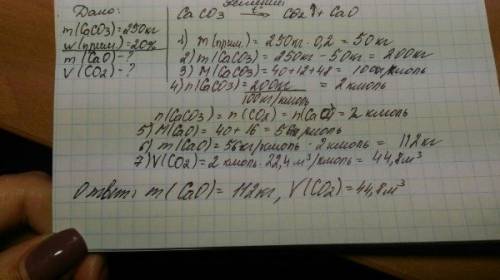 Дано:
m(CaCO3)=250кг
w(прим.)=20%
m(CaO)-?
V(CO2)-?
CaCO3 ⇄ CO2↑ + CaO
1) m(прим.)=250кг·0,2=50кг
2) m(CaCO3)=250кг-50кг=200кг
3) M(CaCO3)=40+12+48=100кг/кмоль
4) n(CaCO3)=200кг/100кг/кмоль=2кмоль
n(CaCO3)=n(CO2)=n(CaO)=2кмоль
5) M(CaO)=40+16=56кг/кмоль
6) m(CaO)=56кг/кмоль·2кмоль=112кг
7) V(CO2)=2кмоль·22,4м³/кмоль=44,8м³
Ответ: m(CaO)=112кг, V(CO2)=44,8м³